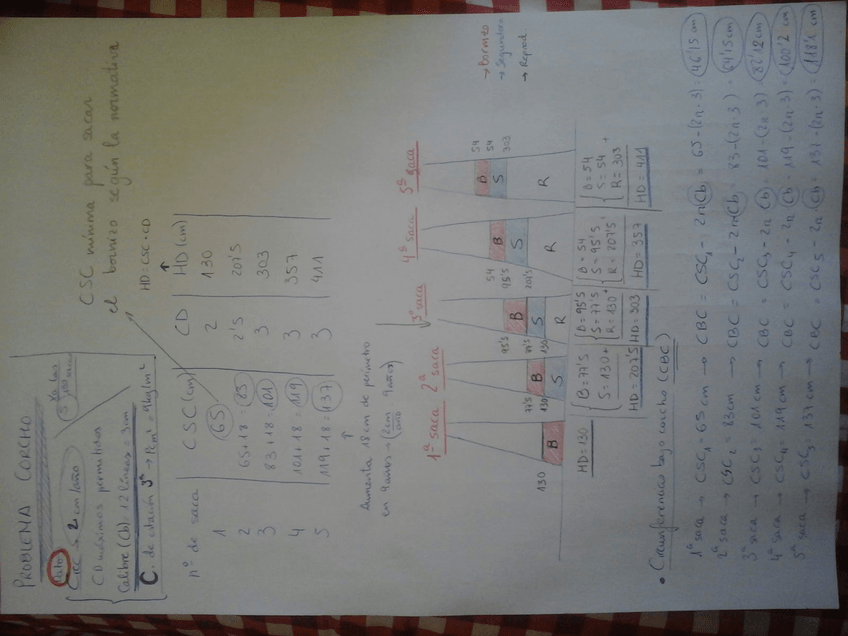 PROBLEMA CORCHO
dato
CrCC ≈ 2 cm/año
CD máximos permitidos
Calibre (Cb): 12 líneas = 3cm
C. de estación 3ª → Pcm² = 9kg/m²
CSC mínima para sacar
el bornizo según la normativa
HD = CSC·CD
nº de saca CSC (cm) CD HD (cm)
1 65 2 130
2 65+18 = 83 2'5 207'5
3 83+18 = 101 3 303
4 101+18 = 119 3 357
5 119+18 = 137 3 411
Aumenta 18cm de perímetro
en 9 años → (2cm/año · 9 años)
1ª saca 2ª saca 3ª saca 4ª saca 5ª saca
→ Bornizo
→ Segundero
→ Reprod.
130 B
77'5 B
130 S
95'5 B
77'5 S
130 R
54 B
95'5 S
207'5 R
B 54
S 54
R 303
HD = 130
B = 77'5
S = 130 +
HD = 207'5
B = 95'5
S = 77'5
R = 130 +
HD = 303
B = 54
S = 95'5
R = 207'5 +
HD = 357
B = 54
S = 54 +
R = 303
HD = 411
• Circunferencia bajo corcho (CBC)
1ª saca → CSC₁ = 65 cm → CBC = CSC₁ - 2π Cb = 65 - (2π·3) = 46'15 cm
2ª saca → CSC₂ = 83cm → CBC = CSC₂ - 2π Cb = 83 - (2π·3) = 64'15 cm
3ª saca → CSC₃ = 101 cm → CBC = CSC₃ - 2π Cb = 101 - (2π·3) = 82'12 cm
4ª saca → CSC₄ = 119 cm → CBC = CSC₄ - 2π Cb = 119 - (2π·3) = 100'2 cm
5ª saca → CSC₅ = 137 cm → CBC = CSC₅ - 2π Cb = 137 - (2π·3) = 118'2 cm